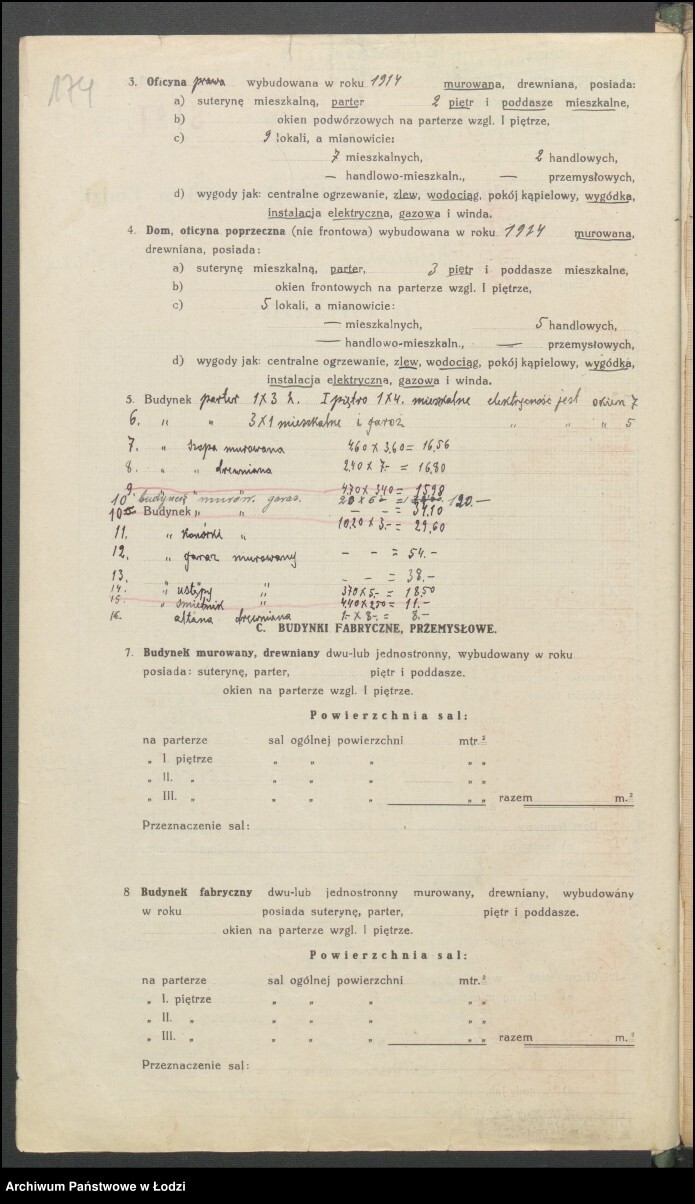 174
3. Oficyna prawa wybudowana w roku 1914 murowana, drewniana, posiada:
a) suterynę mieszkalną, parter 2 piętr i poddasze mieszkalne,
b) okien podwórzowych na parterze wzgl. I piętrze,
c) 9 lokali, a mianowicie:
7 mieszkalnych, 2 handlowych,
— handlowo-mieszkaln., — przemysłowych,
d) wygody jak: centralne ogrzewanie, zlew, wodociąg, pokój kąpielowy, wygódka,
instalacja elektryczna, gazowa i winda.
4. Dom, oficyna poprzeczna (nie frontowa) wybudowana w roku 1924 murowana,
drewniana, posiada:
a) suterynę mieszkalną, parter, 3 piętr i poddasze mieszkalne,
b) okien frontowych na parterze wzgl. I piętrze,
c) 5 lokali, a mianowicie:
— mieszkalnych, 5 handlowych,
— handlowo-mieszkaln., — przemysłowych,
d) wygody jak: centralne ogrzewanie, zlew, wodociąg, pokój kąpielowy, wygódka,
instalacja elektryczna, gazowa i winda.
5. Budynek parter 1X3 I piętro 1X4. mieszkalne elektryczność jest okien 7
6. " " 3X1 mieszkalne i garaż " " " 5
7. " szopa murowana 4.60 X 3.60 = 16,56
8. " " drewniana 2.40 X 7.- = 16,80
9. " " 4.70 X 3.40 = 15,98
10 budynek murow. garaż. 20 X 6 = 120.—
Budynek " " — - = 34.10
11. " komórki " 10.20 X 3.- = 29,60
12. " garaż murowany - - = 54.-
13. - - = 38.-
14. " ustępy " 370 X 5.- = 18,50
15. " śmietnik " 4.40 X 2.50 = 11.-
16. altana drewniana 1.- X 8.- = 8.-
C. BUDYNKI FABRYCZNE, PRZEMYSŁOWE.
7. Budynek murowany, drewniany dwu-lub jednostronny, wybudowany w roku
posiada: suterynę, parter, piętr i poddasze.
okien na parterze wzgl. I piętrze.
Powierzchnia sal:
na parterze sal ogólnej powierzchni mtr.²
„ I. piętrze „ „ „ „ „
„ II. „ „ „ „ „ „
„ III. „ „ „ „ „ „ razem m.²
Przeznaczenie sal:
8 Budynek fabryczny dwu-lub jednostronny murowany, drewniany, wybudowany
w roku posiada suterynę, parter, piętr i poddasze.
okien na parterze wzgl. I piętrze.
Powierzchnia sal:
na parterze sal ogólnej powierzchni mtr.²
„ I. piętrze „ „ „ „ „
„ II. „ „ „ „ „ „
„ III. „ „ „ „ „ „ razem m.²
Przeznaczenie sal:
Archiwum Państwowe w Łodzi